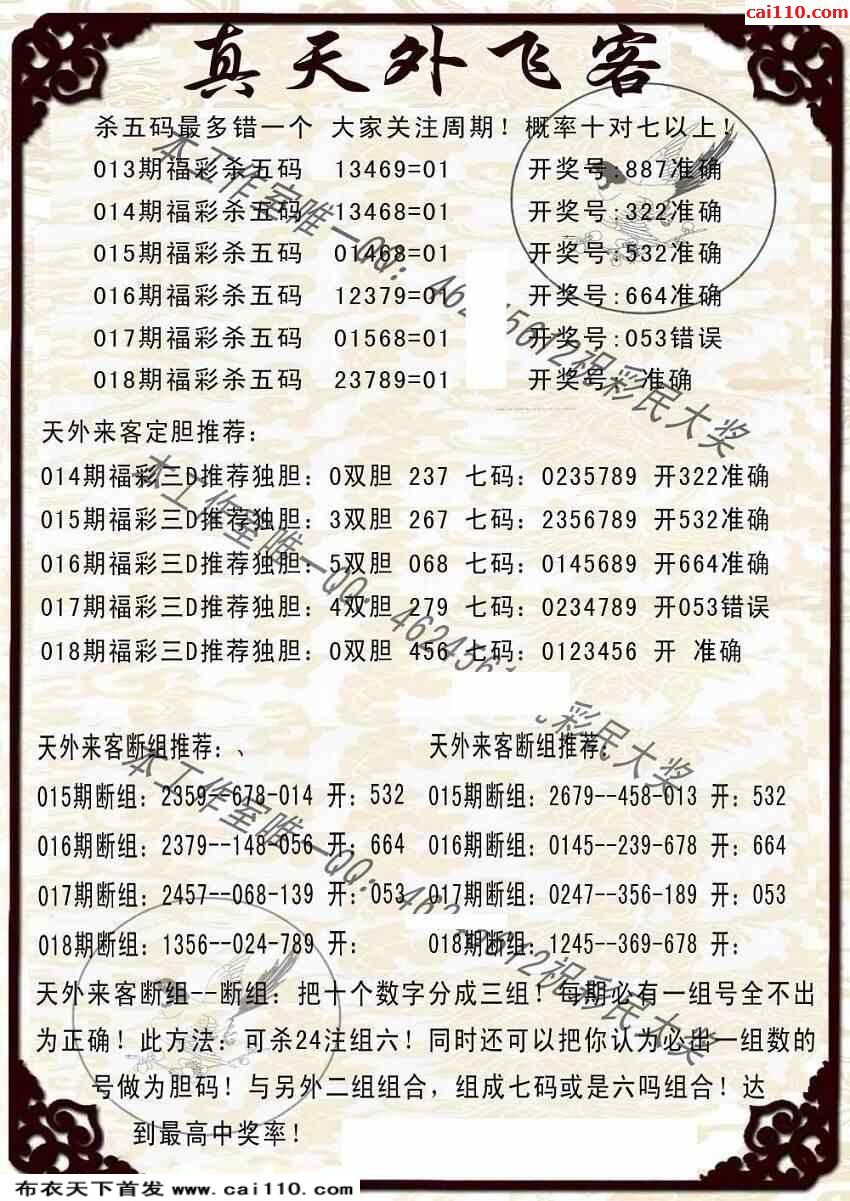 cai110.com
真天外飞客
杀五码最多错一个 大家关注周期！概率十对七以上！
013期福彩杀五码 13469=01 开奖号:887准确
014期福彩杀五码 13468=01 开奖号:322准确
015期福彩杀五码 01468=01 开奖号:532准确
016期福彩杀五码 12379=01 开奖号:664准确
017期福彩杀五码 01568=01 开奖号:053错误
018期福彩杀五码 23789=01 开奖号: 准确
天外来客定胆推荐：
014期福彩三D推荐独胆：0双胆 237 七码：0235789 开322准确
015期福彩三D推荐独胆：3双胆 267 七码：2356789 开532准确
016期福彩三D推荐独胆：5双胆 068 七码：0145689 开664准确
017期福彩三D推荐独胆：4双胆 279 七码：0234789 开053错误
018期福彩三D推荐独胆：0双胆 456 七码：0123456 开 准确
天外来客断组推荐：、 天外来客断组推荐：
015期断组：2359--678-014 开：532 015期断组：2679--458-013 开：532
016期断组：2379--148-056 开：664 016期断组：0145--239-678 开：664
017期断组：2457--068-139 开：053 017期断组：0247--356-189 开：053
018期断组：1356--024-789 开： 018期断组：1245--369-678 开：
天外来客断组--断组：把十个数字分成三组！每期必有一组号全不出
为正确！此方法：可杀24注组六！同时还可以把你认为必出一组数的
号做为胆码！与另外二组组合，组成七码或是六吗组合！达
到最高中奖率！
本工作室唯一QQ： 祝彩民大奖
本工作室唯一QQ： 彩民大奖
本工作室唯一QQ： 祝彩民大奖
布衣天下首发 www.cai110.com